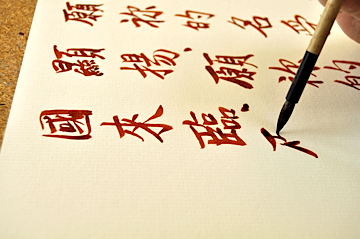 願祢的名受
顯揚、願祢的
國來臨.